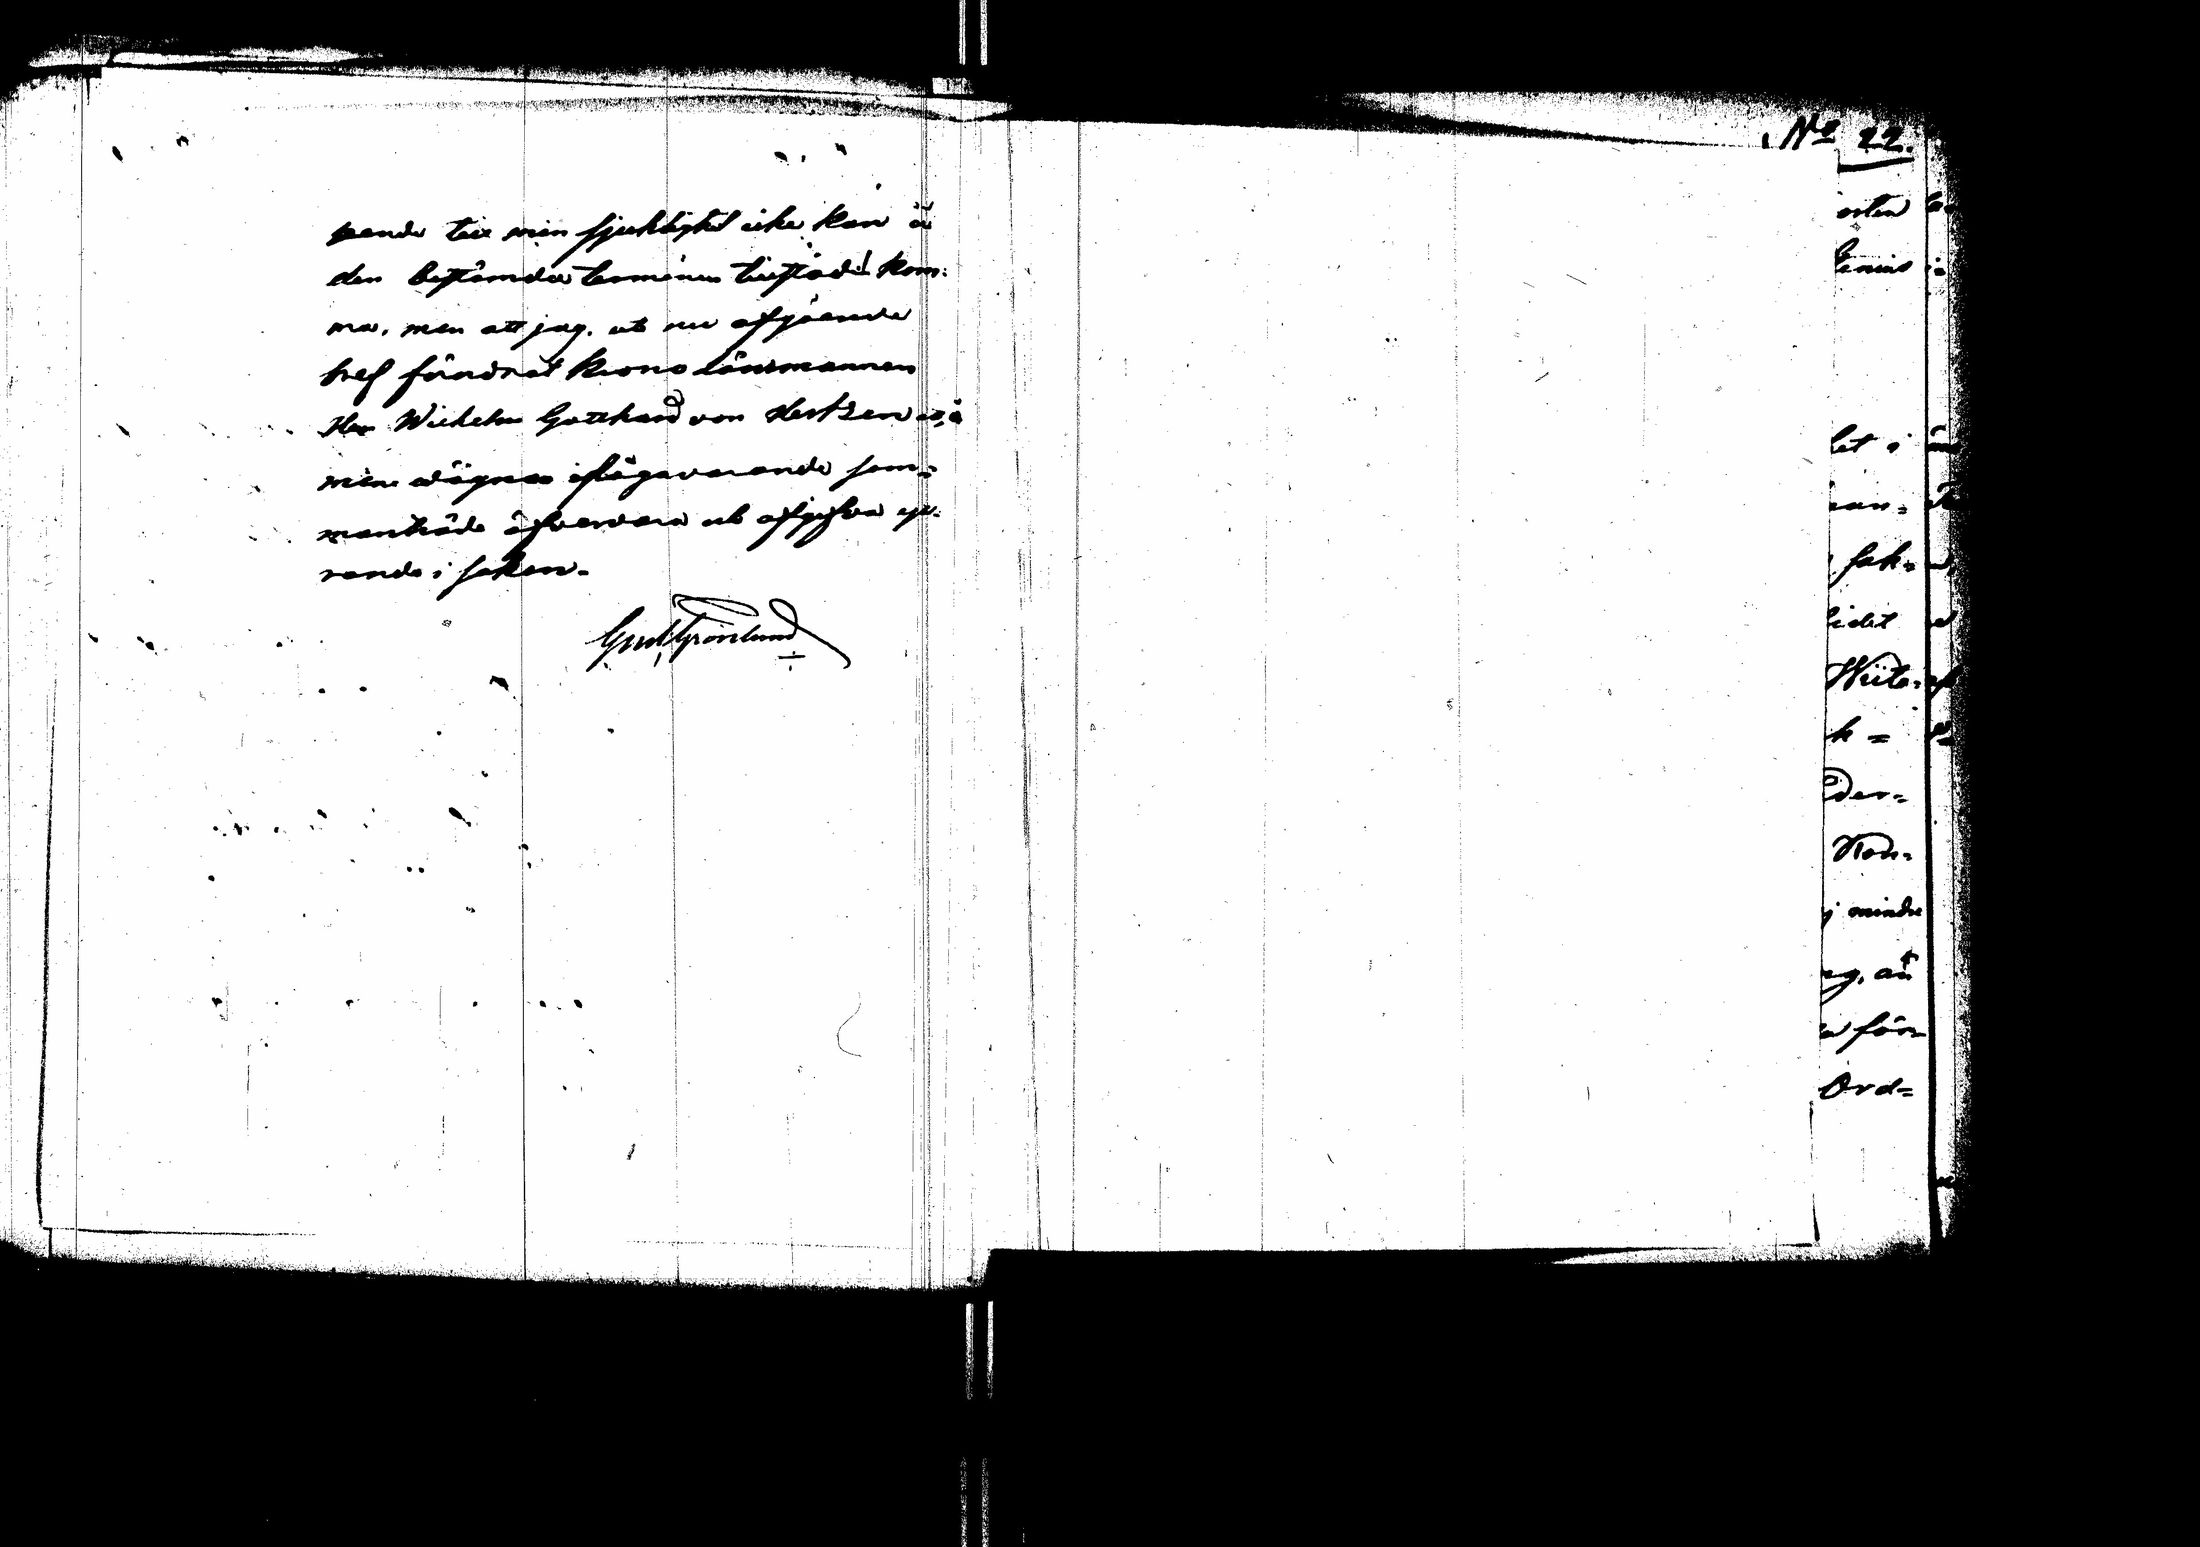 pande till min sjuklighet icke kan å
den bestämda terminen tillstädes kom-
ma, men att jag, ut nu afgående
bref förordnat Kronolänsmannen
Herr Wilhelm Gotthard von Hertzen at å
mine wägnar ifrågavarande sam-
manträde öfvervara och afgifva ytt-
rande i saken.
Gust Grönlund
No 22.
orten
let i
man-
sak-
lidet
Wiita-
k =
Eder-
Non-
mindre
än
för-
Ord-